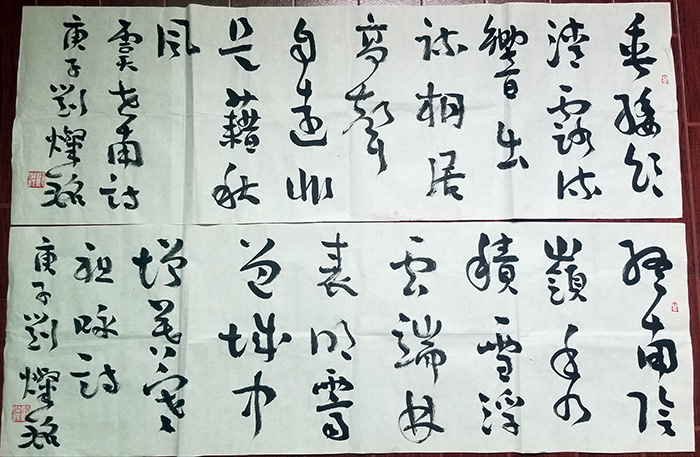 垂緌飲
清露流
響出
疏桐居
高聲
自遠非
是藉秋
風
虞世南詩
庚子劉燦銘
終南陰
嶺秀
積雪浮
云端林
表明霽
色城中
增暮寒
祖咏詩
庚子劉燦銘